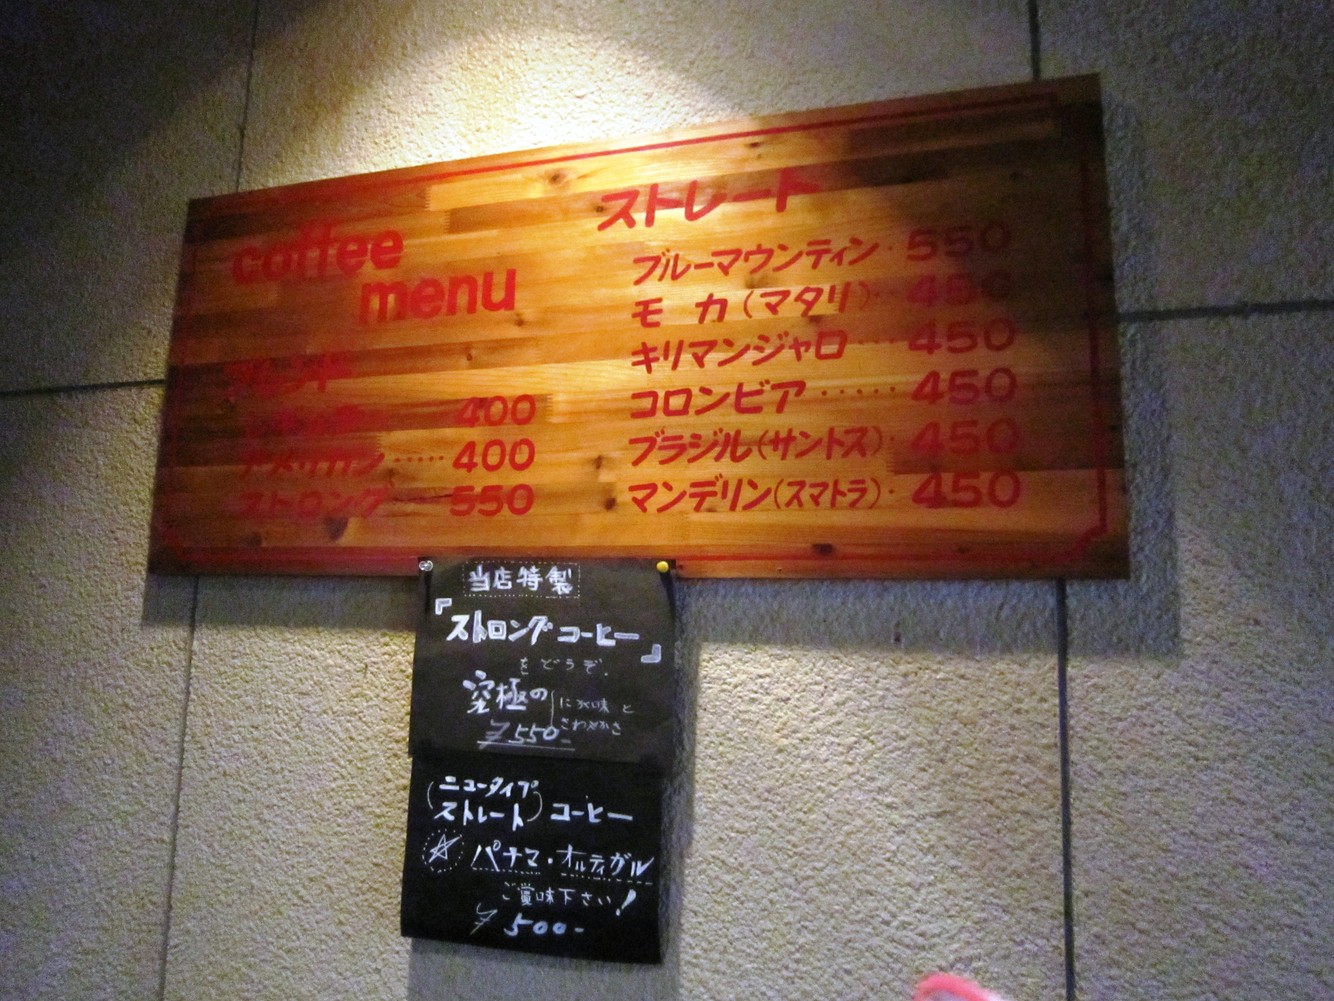 coffee
menu
ブレンド
400
アメリカン・・・・・400
ストロング・・・550
ストレート
ブルーマウンティン・550
モカ（マタリ）・450
キリマンジャロ・・・450
コロンビア・・・・・450
ブラジル（サントス）・450
マンデリン（スマトラ）・450
当店特製
『ストロングコーヒー』
をどうぞ.
究極の
にが味と
さわやかさ
¥550-
（ニュータイプ）
ストレート コーヒー
☆ パナマ・オルティガル
ご賞味下さい!
¥500-